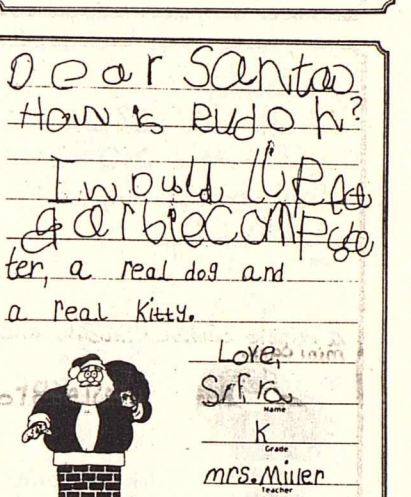 Dear Santa
How is Rudoh?
I would like a
garbiecompu
ter, a real dog and
a real kitty.
Love,
Name
K
Grade
mrs. Miller
Teacher